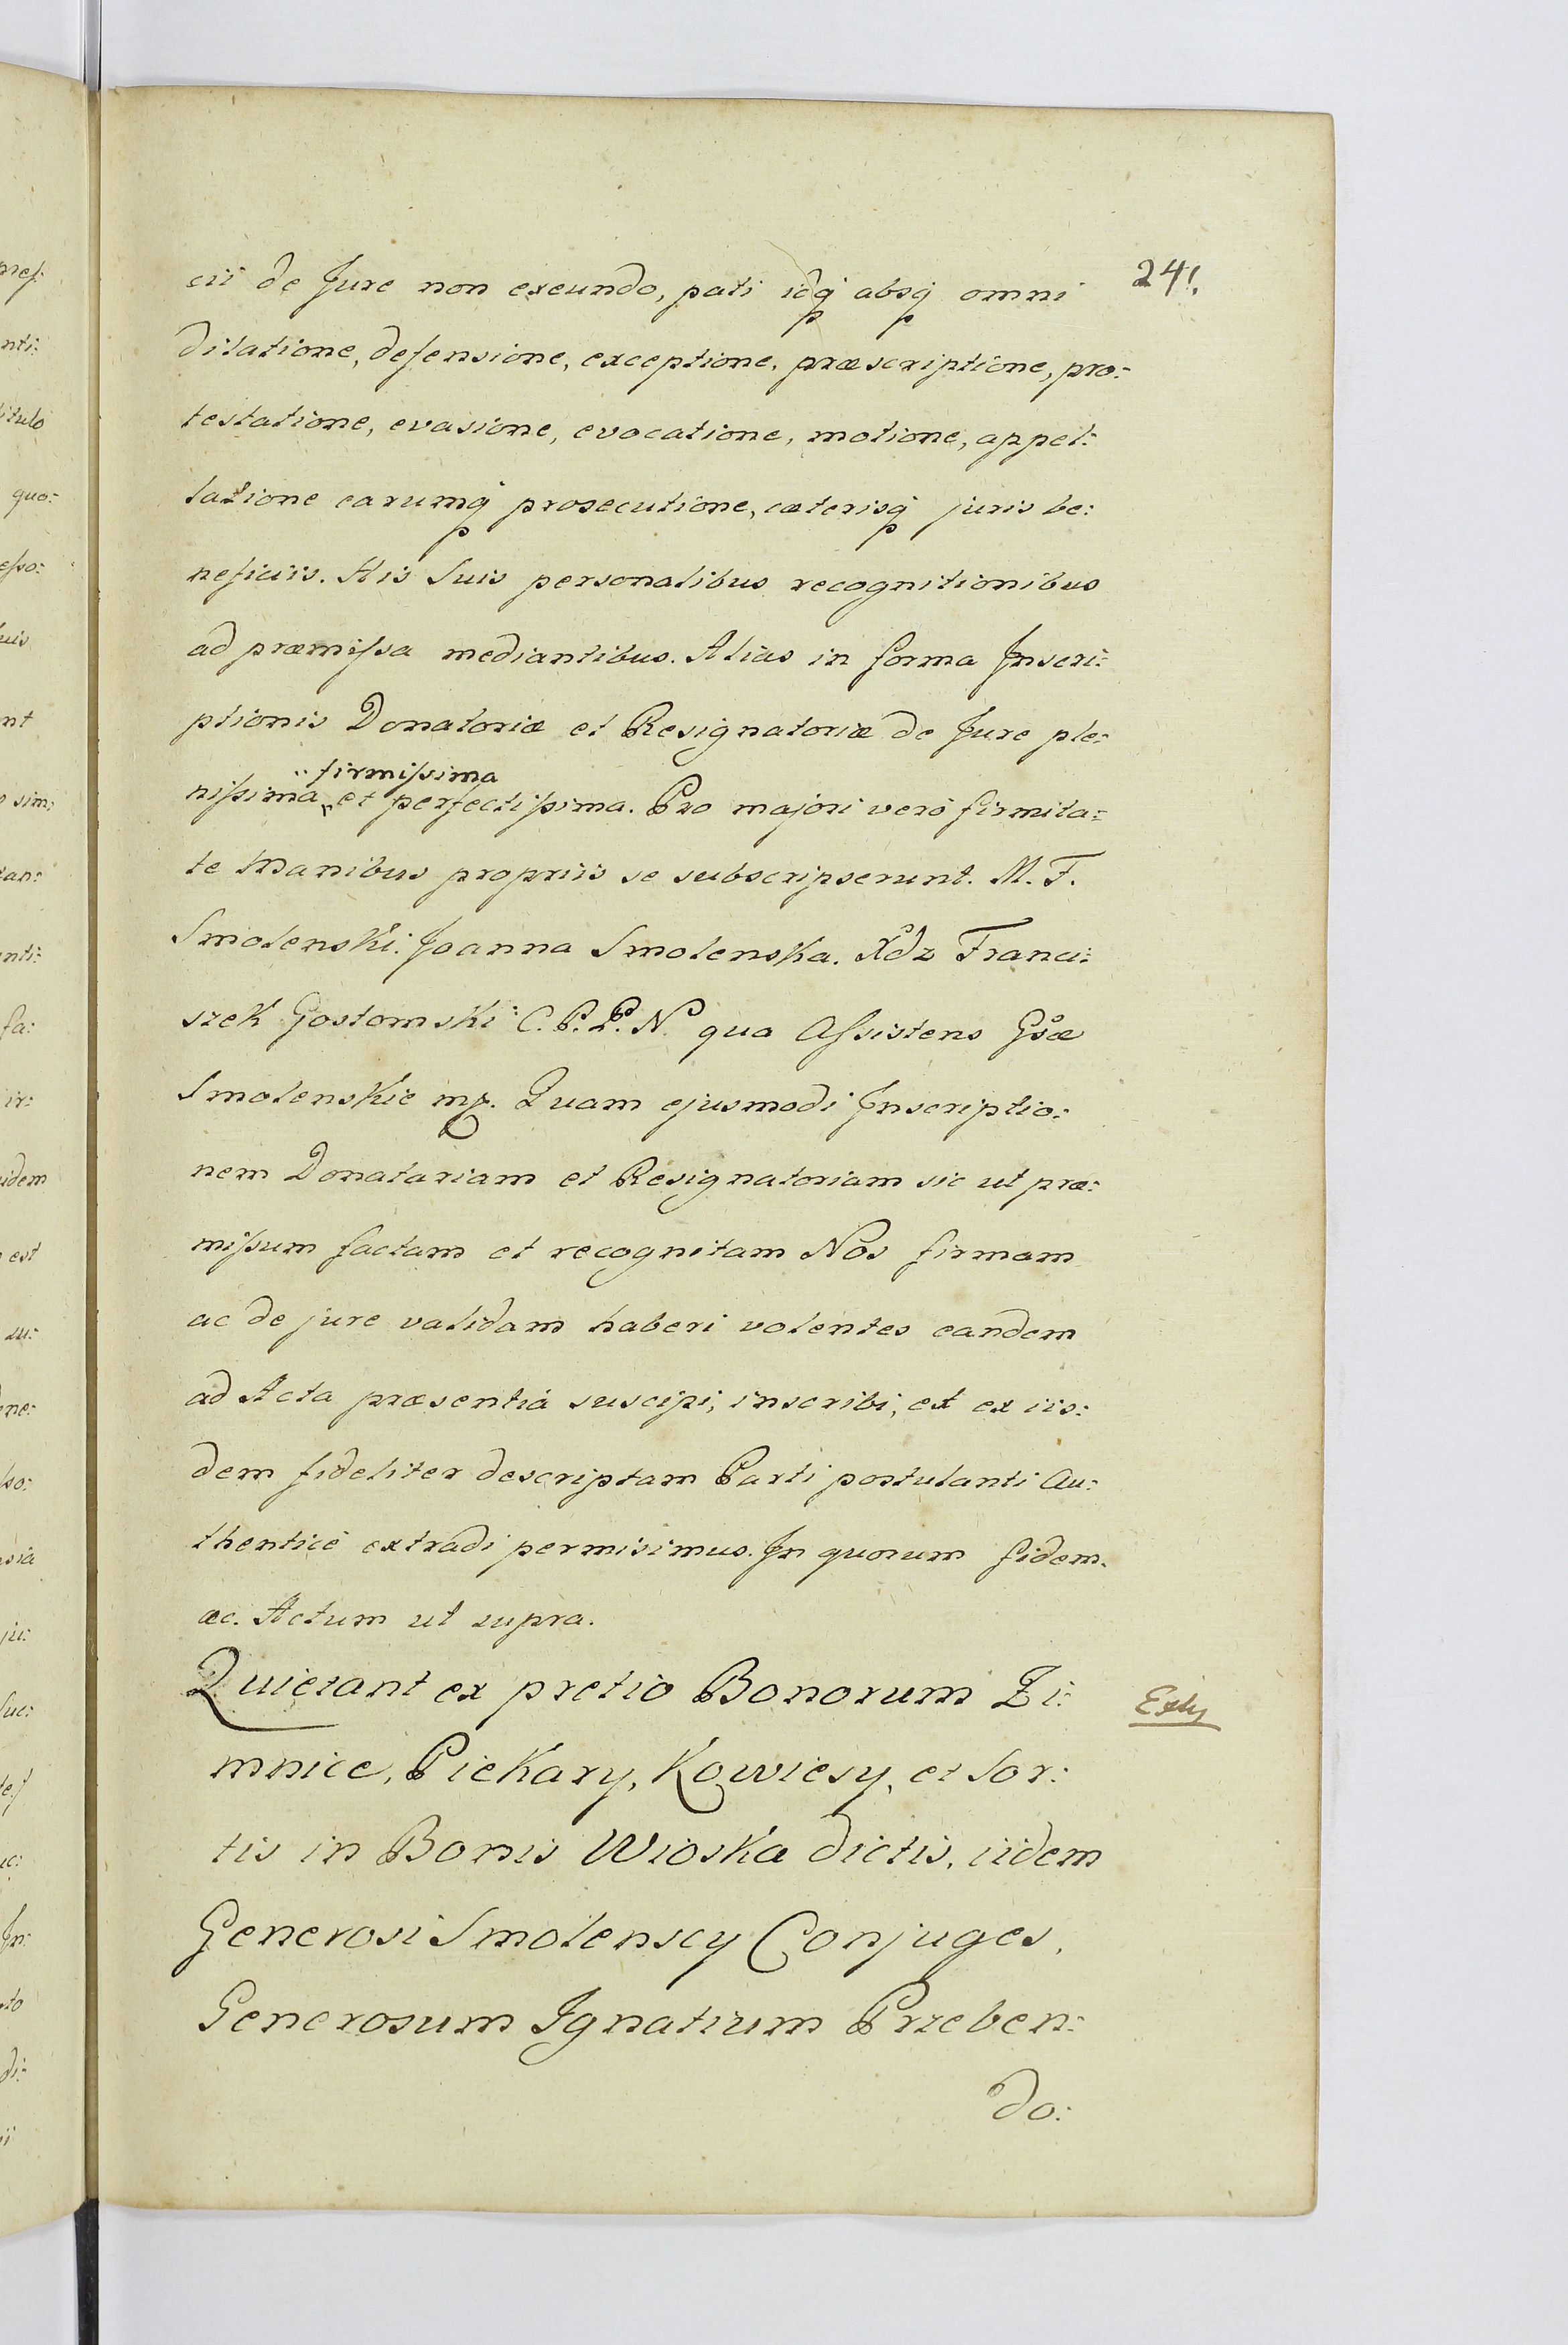 241.
cii de Jure non exeundo, pati idq absq omni
dilatione, defensione, exceptione, præscriptione, pro:
testatione, evasione, evocatione, motione, appel:
latione earumq prosecutione, cæterisq juris be:
neficiis. His Suis personalibus recognitionibus
ad præmissa mediantibus. Alias in forma Inscri:
ptionis Donatoriæ et Resignatoriæ de Jure ple:
firmissima
nissima et perfectissima. Pro majori verò firmita:
te Manibus propriis se subscripserunt. M. F.
Smolenski. Joanna Smolenska. Xdz Franci:
szek Gostomski C. P. P. N. qua Assistens Gsæ
Smolenskie mp. Quam ejusmodi Inscriptio:
nem Donatariam et Resignatoriam sic ut præ:
missum factam et recognitam Nos firmam
ac de jure validam haberi volentes eandem
ad Acta præsentia suscipi, inscribi, et ex iis:
dem fideliter descriptam Parti postulanti Au:
thenticè extradi permisimus. In quorum fidem.
æc. Actum ut supra.
Quietant ex pretio Bonorum Zi:
mnice, Piekary, Kowiesy, et Sor:
tis in Bonis Wioska dictis, iidem
Generosi Smolenscy Conjuges,
Generosum Ignatium Przeben:
do: